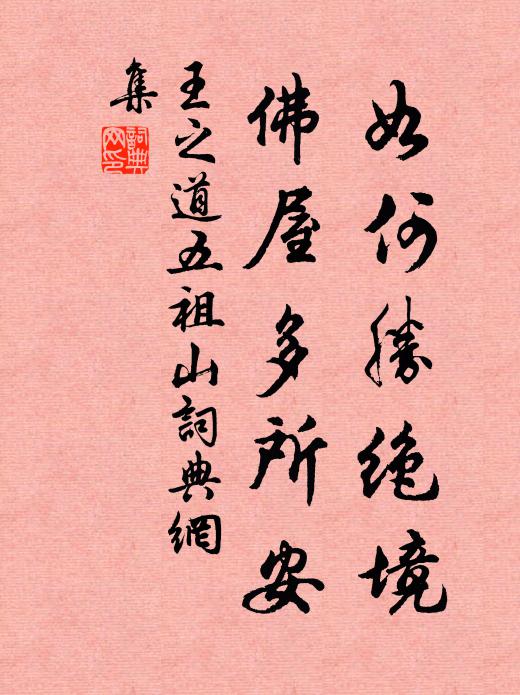 如何勝絶境
佛屋多所安
王之道五祖山詞典網
集
詞典网印